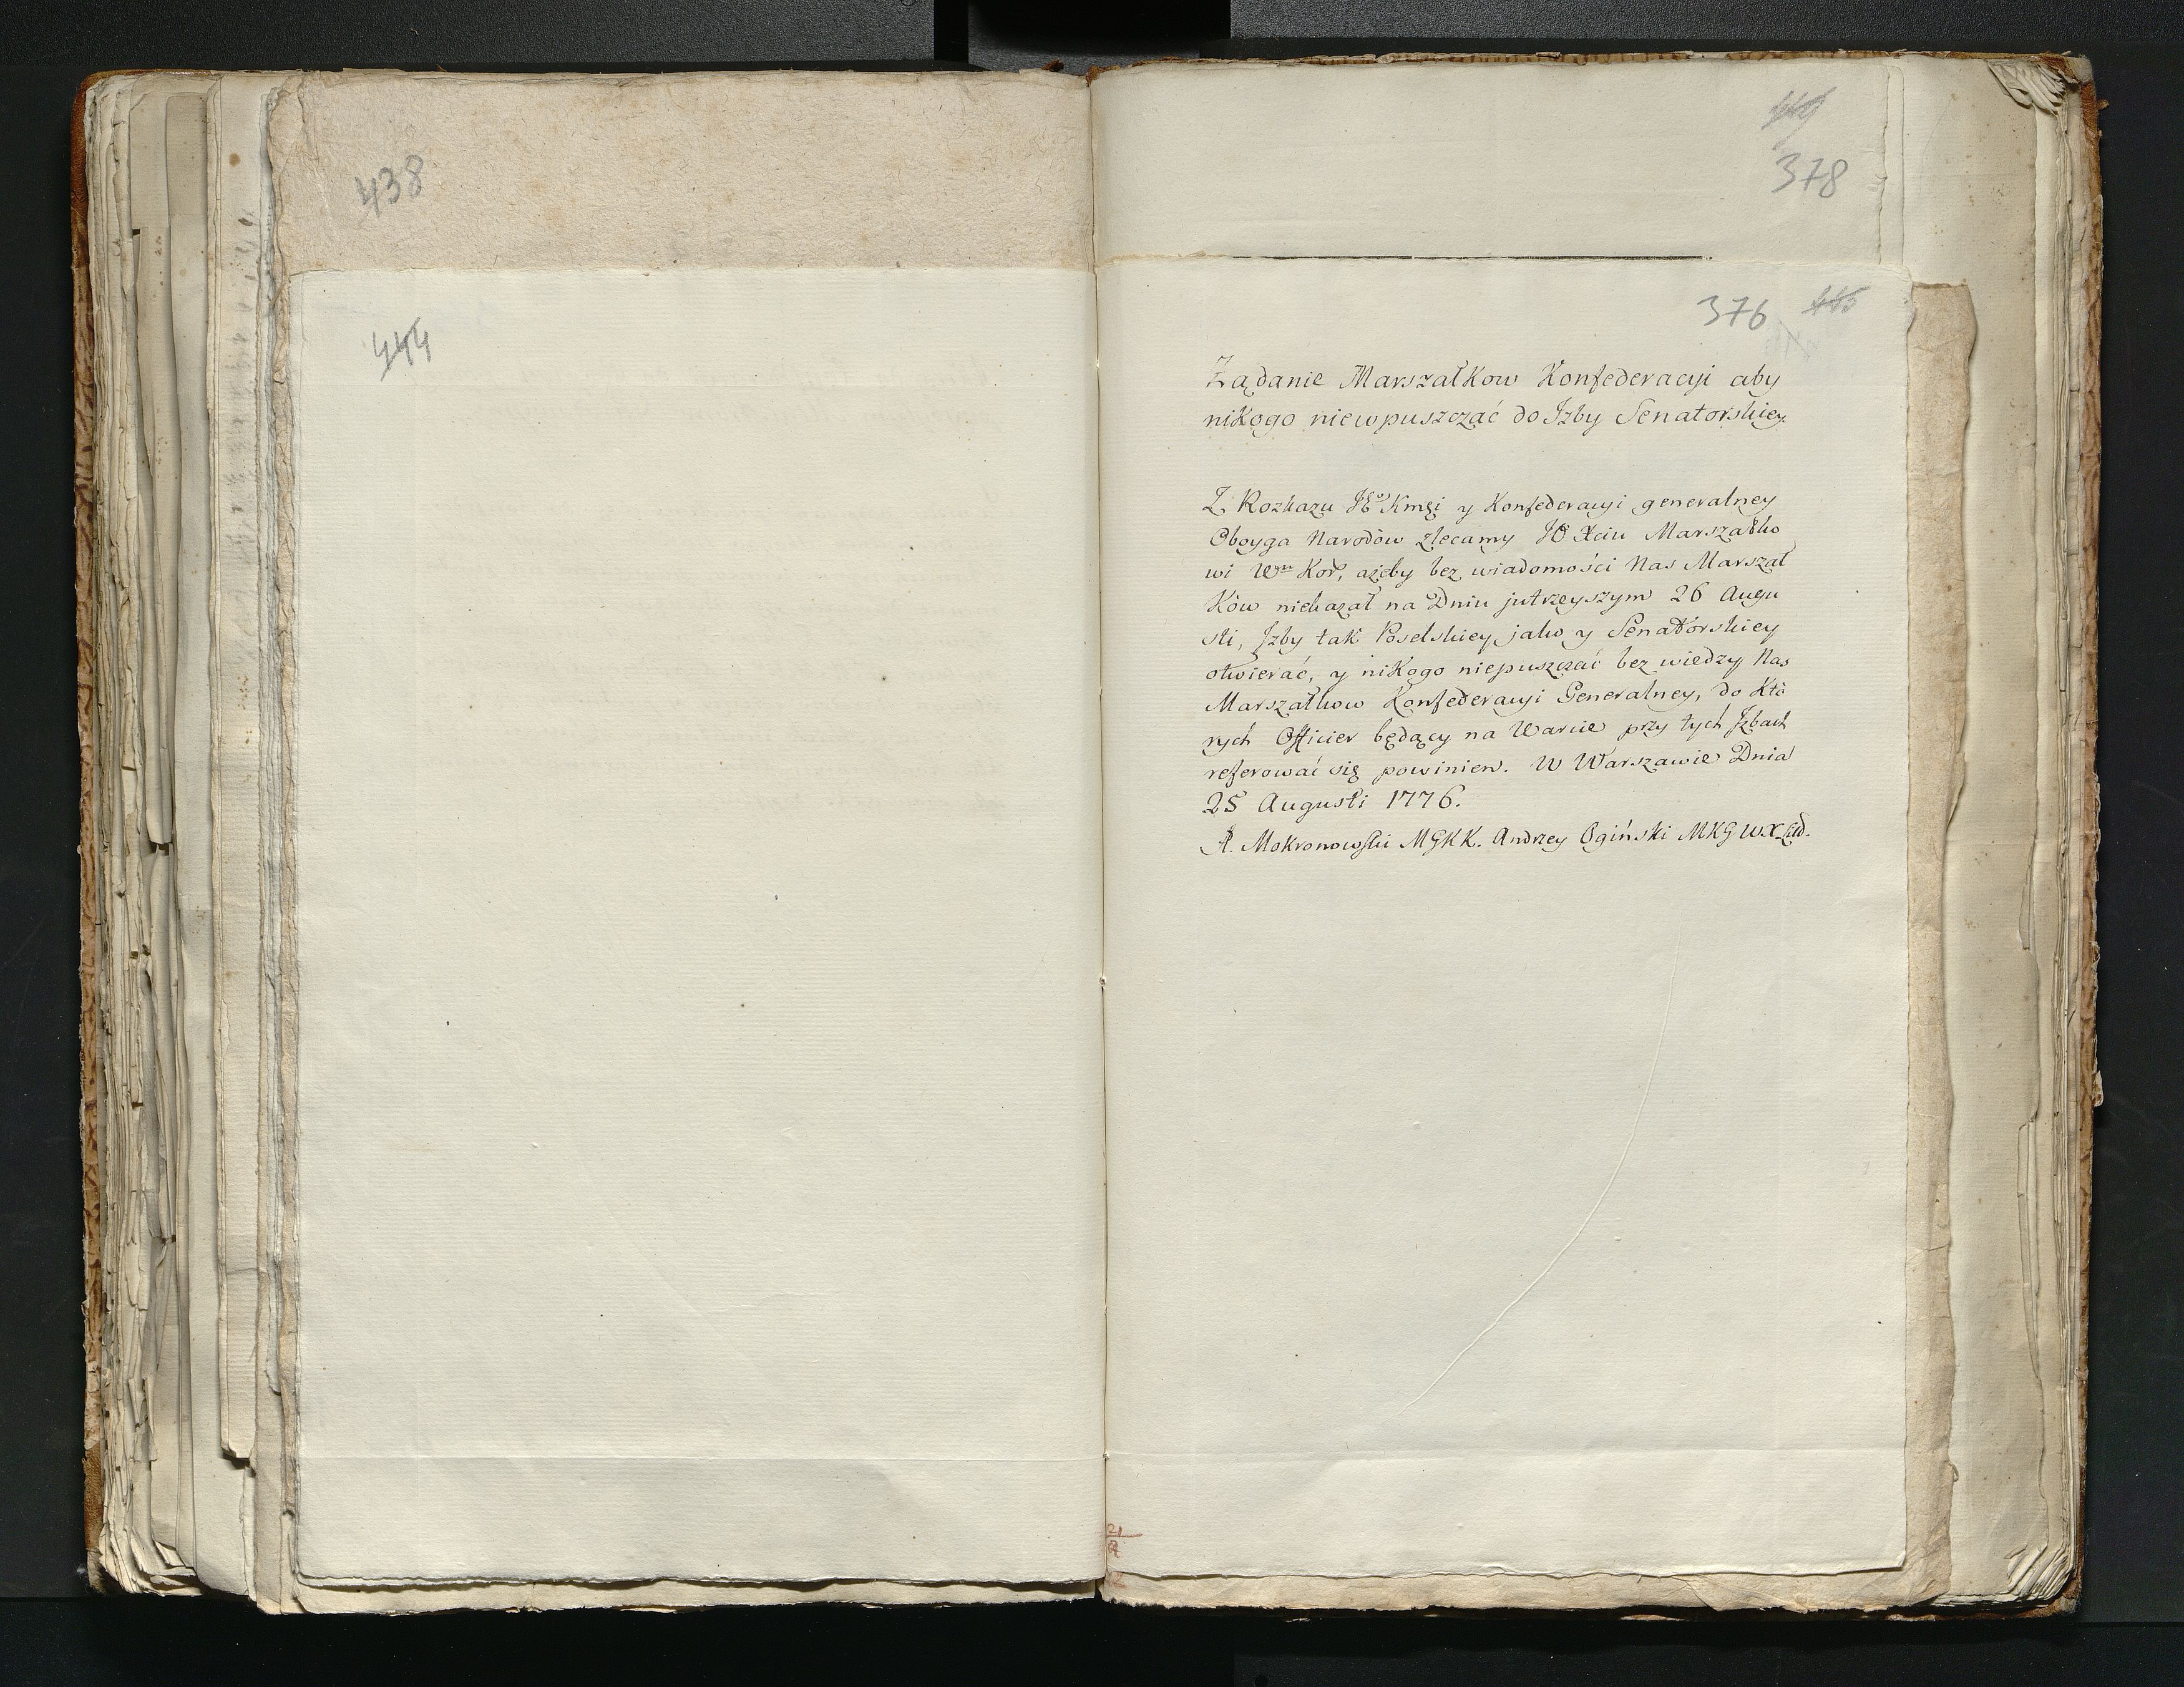 438
444
378
376
Ządanie Marszałkow Konfederacyi aby
nikogo niewpuszczać do Izby Senatorskiey.
Z Rozkazu JKMści y Konfederacyi generalney
Oboyga Narodów zlecamy JO Xciu Marszałko
wi Wmu Kor, ażeby bez wiadomości Nas Marszał
ków niekazał na Dniu jutrzeyszym 26 Augu
sti, Izby tak Poselskiey jako y Senatorskiey
otwierać, y nikogo niepuszczać bez wiedzy Nas
Marszałkow Konfederacyi Generalney, do Któ
rych Officier będący na Warcie przy tych Izbach
referować się powinien. W Warszawie Dnia
25 Augusti 1776.
A. Mokronowski MGKK. Andrzey Ogiński MKG WXLitt.